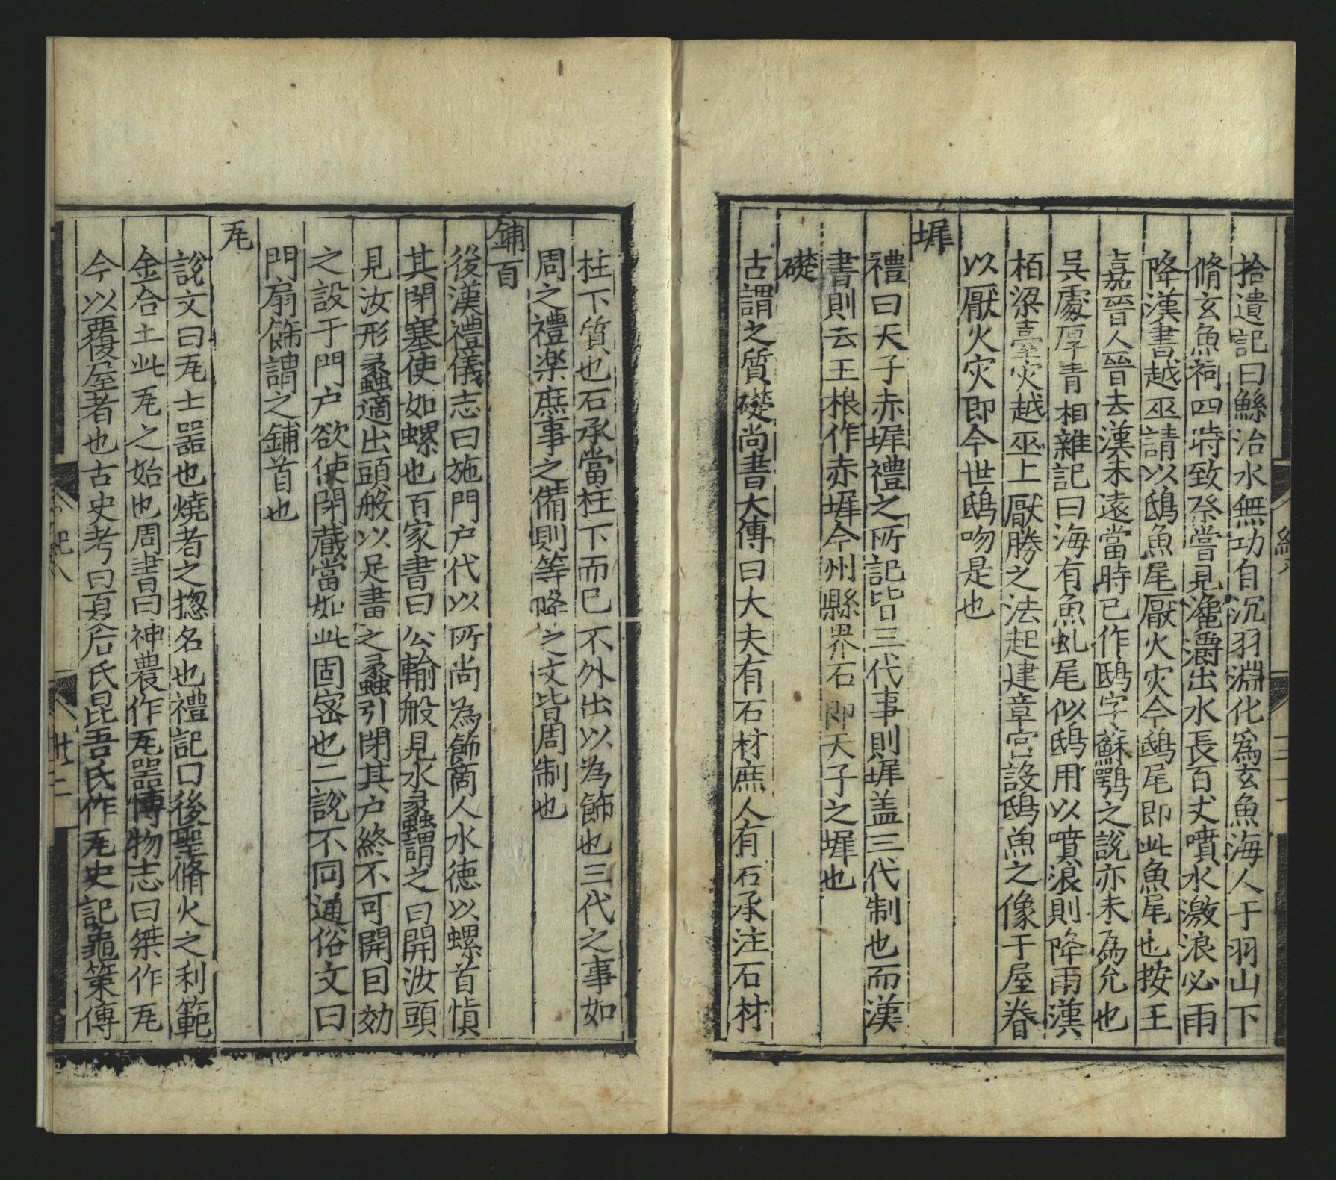 拾遺記曰鯀治水無功自沉羽淵化為玄魚海人于羽山下
脩玄魚祠四時致祭嘗見瀺灂出水長百丈噴水激浪必雨
降漢書越巫請以鴟魚尾厭火灾今鴟尾即此魚尾也按王
嘉晉人晉去漢未遠當時已作鴟字蘇鶚之說亦未為允也
吳處厚青相雜記曰海有魚虬尾似鴟用以噴浪則降雨漢
栢梁臺灾越巫上厭勝之法起建章宮設鴟魚之像于屋眷
以厭火灾即今世鴟吻是也
墀
禮曰天子赤墀禮之所記皆三代事則墀盖三代制也而漢
書則云王根作赤墀今州縣界石即天子之墀也
礎
古謂之質礎尚書大傳曰大夫有石材庶人有石承注石材
柱下質也石承當柱下而已不外出以為飾也三代之事如
周之禮楽庶事之備則等略之文皆周制也
鋪首
後漢禮儀志曰施門户代以所尚為飾商人水德以螺首慎
其閉塞使如螺也百家書曰公輸般見水蠡謂之曰開汝頭
見汝形蠡適出頭般以足畫之蠡引閉其户終不可開因効
之設于門户欲使閉蔵當如此固宻也二說不同通俗文曰
門扇飾謂之鋪首也
瓦
說文曰瓦土噐也燒者之揔名也禮記曰後聖脩火之利範
金合土此瓦之始也周書曰神農作瓦噐博物志曰桀作瓦
今以覆屋者也古史考曰夏后氏昆吾氏作瓦史記龜策傳